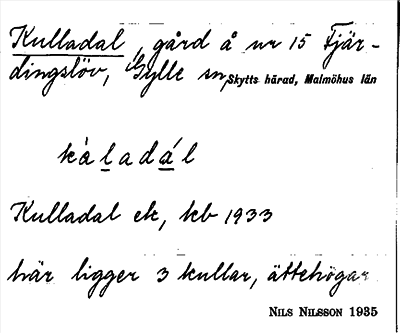 Kulladal, gård å nr 15 Fjär-
dingslöv, Gylle sn, Skytts härad, Malmöhus län
kàladál
Kulladal ek, kb 1933
här ligger 3 kullar, ättehögar
NILS NILSSON 1935